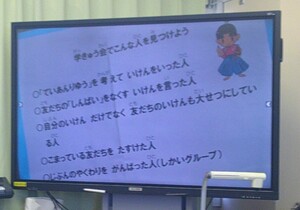 学きゅう会でこんな人を見つけよう
○「ていあんりゆう」を 考えて いけんをいった人
○友だちの「しんぱい」をなくす いけんを言った人
○自分のいけん だけでなく 友だちのいけんも大せつにしてい
る人
○こまっている友だちを たすけた人
○じぶんのやくわりを がんばった人(しかいグループ)